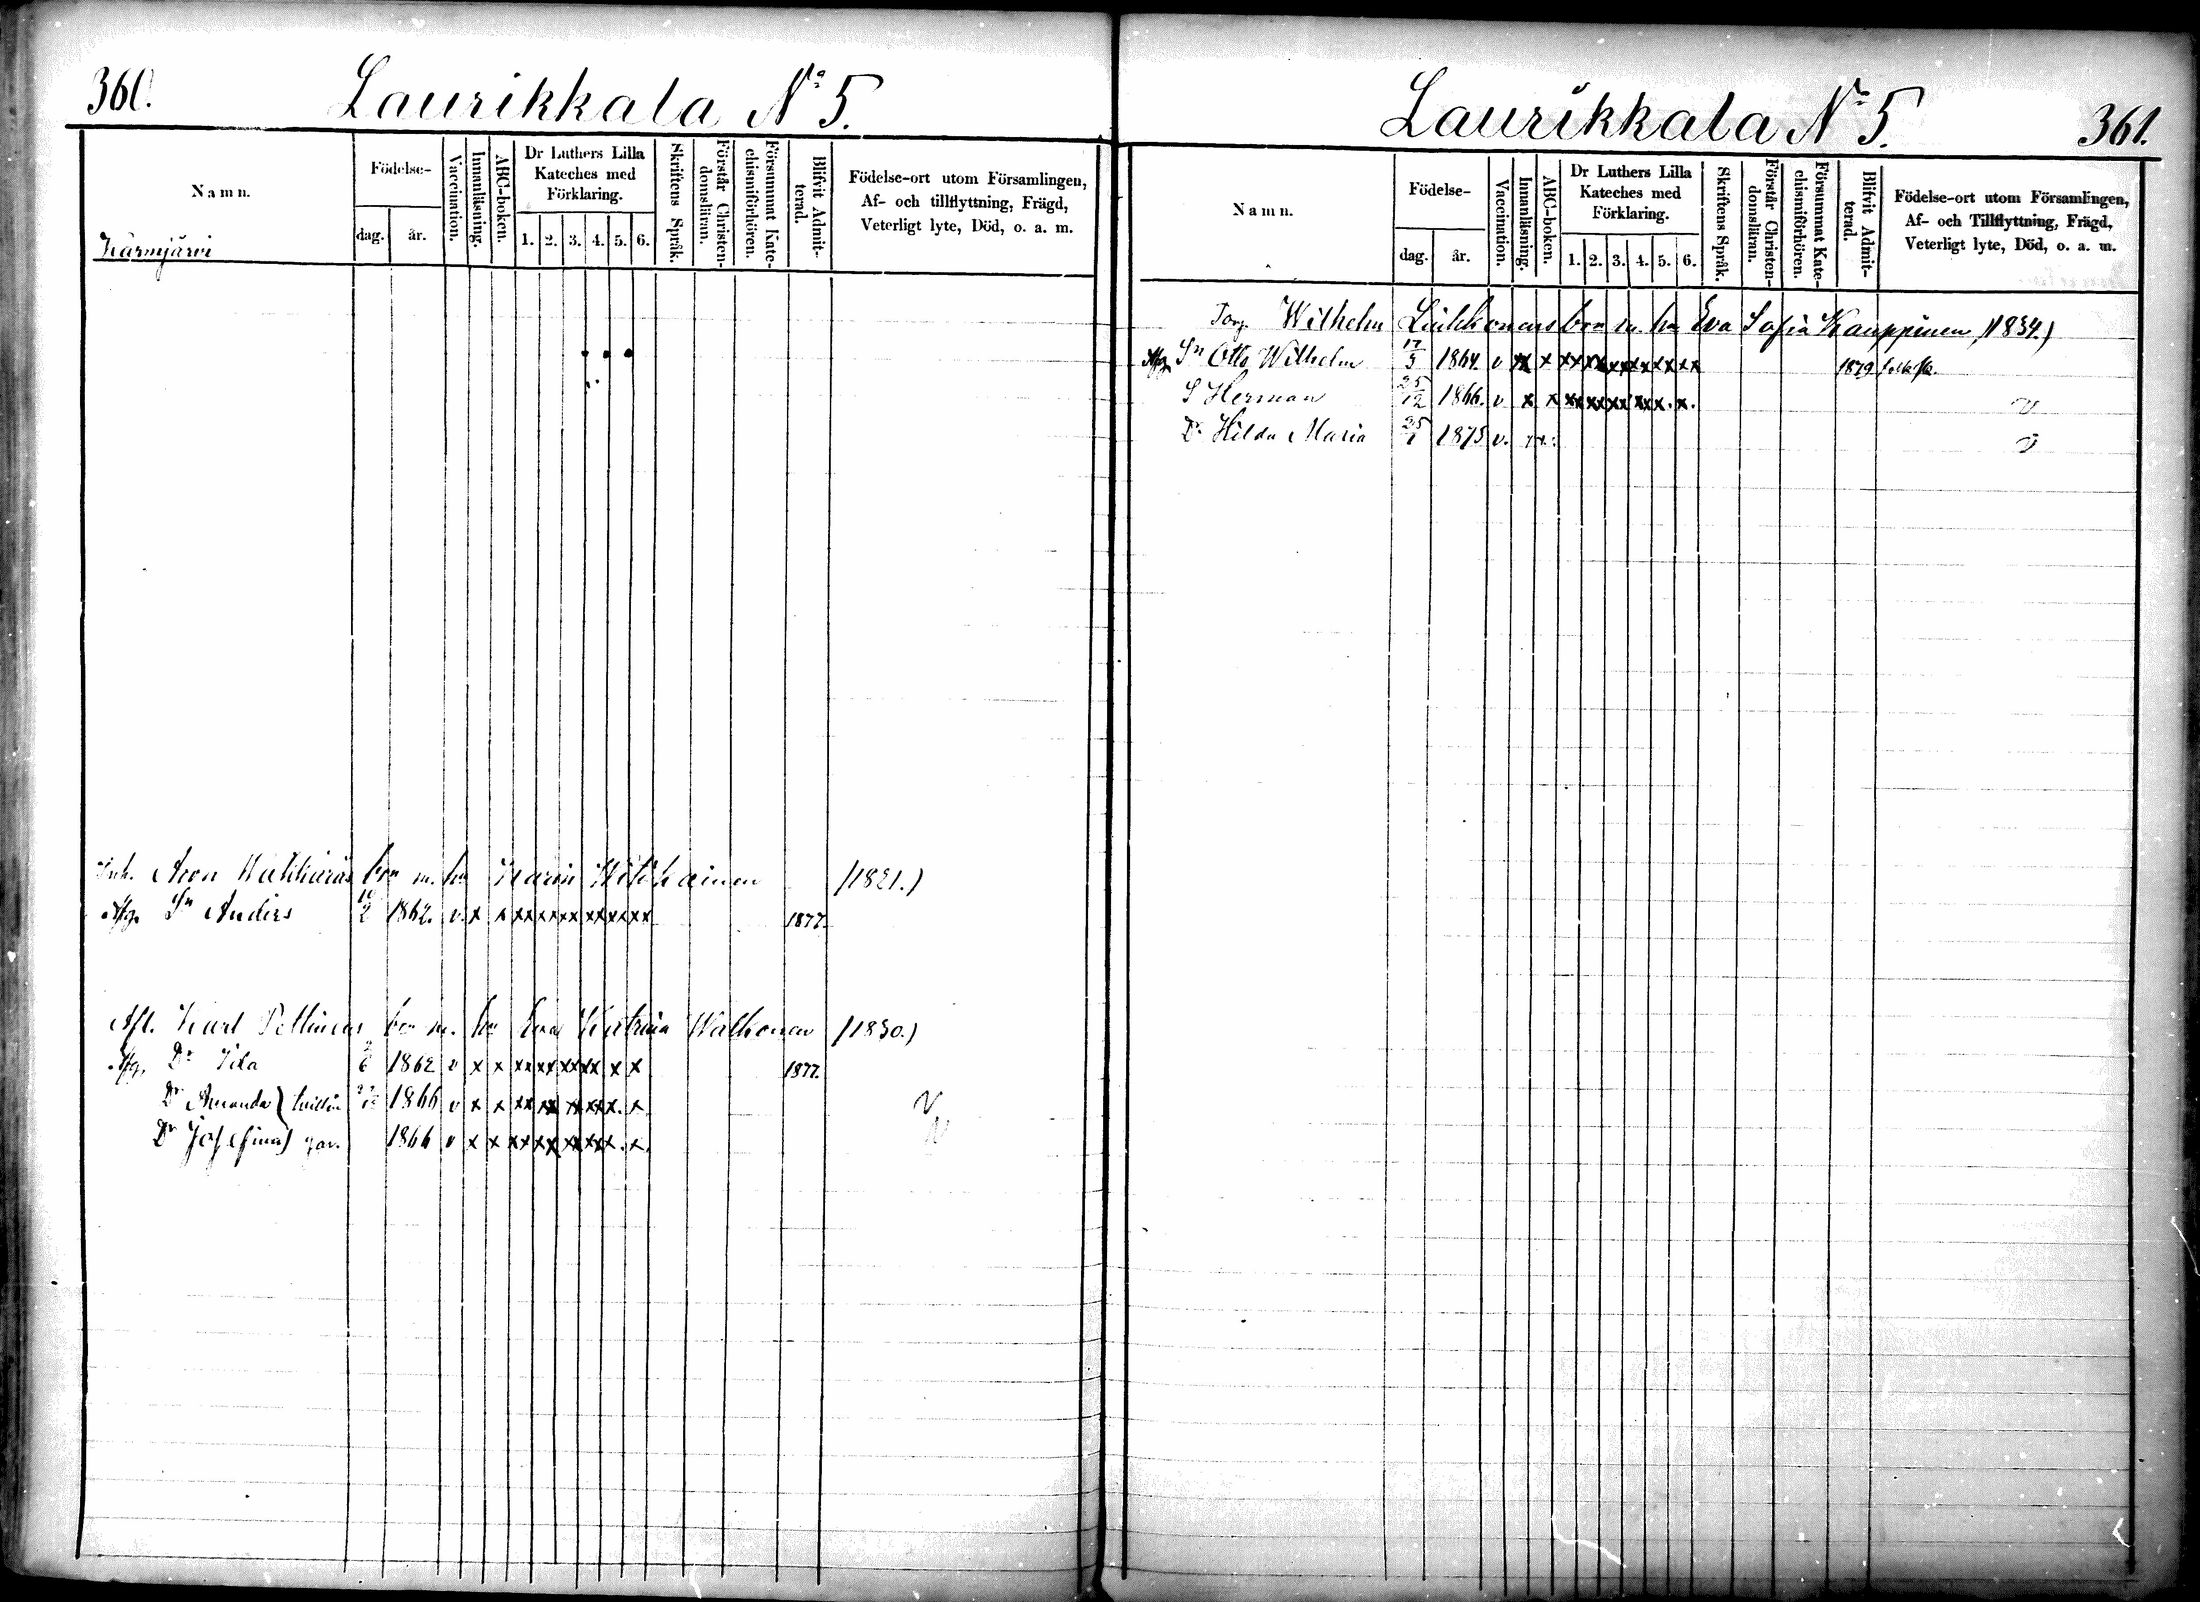 360.
Laurikkala No 5.
Namn.
Födelse-
dag.
år.
Vaccination.
Innanläsning.
ABC-boken.
Dr Luthers Lilla Kateches med Förklaring.
1. 2. 3. 4. 5. 6.
Skriftens Språk.
Förstår Christendomsläran.
Försummat Katechismiförhören.
Blifvit Admitterad.
Födelse-ort utom Församlingen,
Af- och tillflyttning, Frägd,
Veterligt lyte, Död, o. a. m.
Kärmjärvi
Inh. Aron barn m. hu Karin (1821.)
Afg. Sn Anders 2 1862. v. x x xx xx xx xx xx xx 1877.
Aft. Karl barn m. hu Eva Katrina Walkonen (1830.)
Afg. Dr Ida 6 1862 v x x xx xx xx xx x x 1877.
Dr Amanda } tvillin 1866 v x x xx xx xx xx x. x v
Dr Josefina } gar. 1866 v x x xx xx xx xx x. x. v
Laurikkala No 5.
361.
Namn.
Födelse-
dag.
år.
Vaccination.
Innanläsning.
ABC-boken.
Dr Luthers Lilla Kateches med Förklaring.
1. 2. 3. 4. 5. 6.
Skriftens Språk.
Förstår Christendomsläran.
Försummat Katechismiförhören.
Blifvit Admitterad.
Födelse-ort utom Församlingen,
Af- och Tillflyttning, Frägd,
Veterligt lyte, Död, o. a. m.
Torp. Wilhelm Liikkonens barn m. hu Eva Sofia Kauppinen (1834.)
Afg. Sn Otto Wilhelm 17/5 1864. v xx x xx xx xx xx xx xx 1879
S Herman 25/12 1866. v x x xx xx xx xx x. x. v
Dr Hilda Maria 25/1 1875 v. x x. v